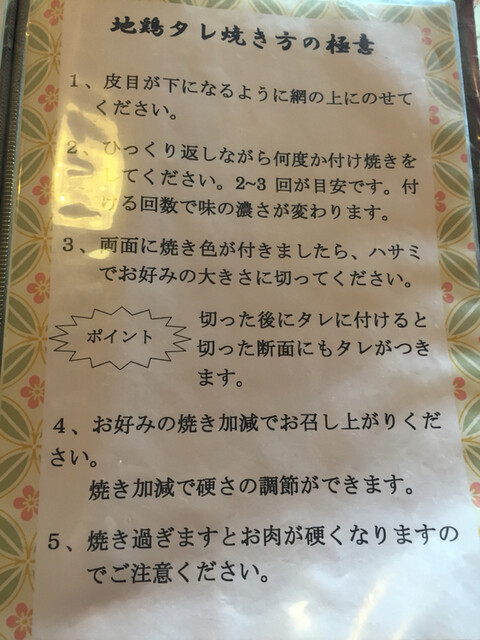 地鶏タレ焼き方の極意
1、皮目が下になるように網の上にのせて
ください。
2、ひっくり返しながら何度か付け焼きを
してください。2~3 回が目安です。付
ける回数で味の濃さが変わります。
3、両面に焼き色が付きましたら、ハサミ
でお好みの大きさに切ってください。
ポイント
切った後にタレに付けると
切った断面にもタレがつき
ます。
4、お好みの焼き加減でお召し上がりくだ
さい。
焼き加減で硬さの調節ができます。
5、焼き過ぎますとお肉が硬くなりますの
でご注意ください。